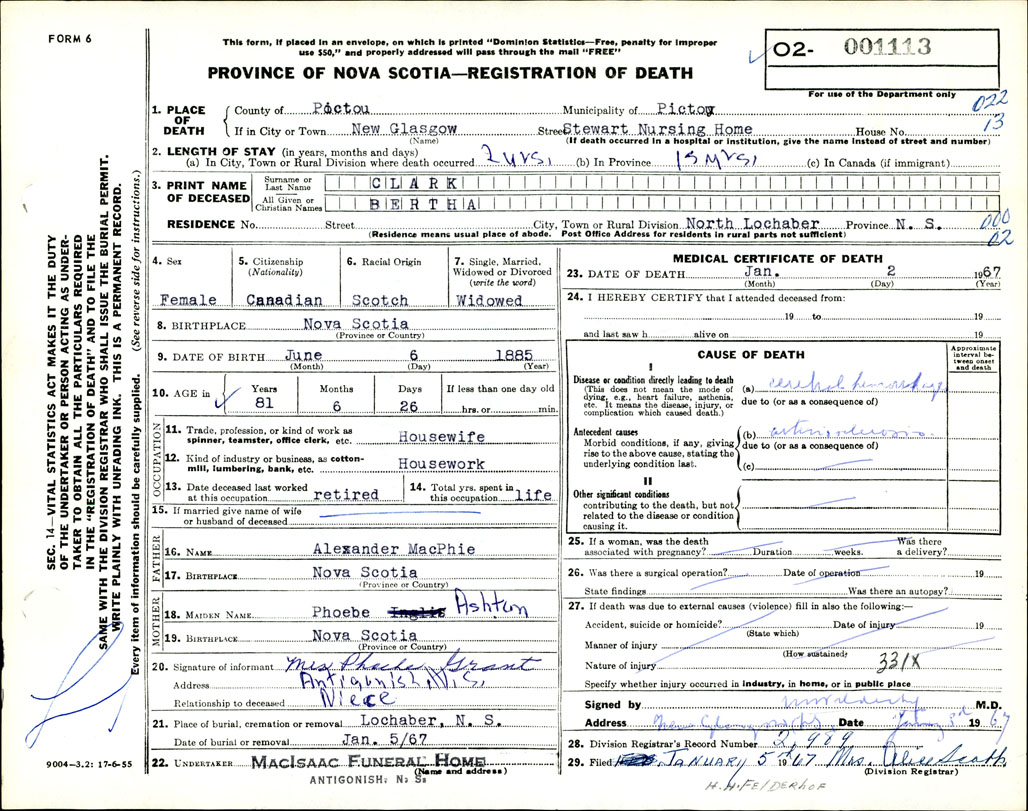 FORM 6
This form, if placed in an envelope, on which is printed "Dominion Statistics—Free, penalty for improper
use $50," and properly addressed will pass through the mail "FREE"
PROVINCE OF NOVA SCOTIA—REGISTRATION OF DEATH
O2- 001113
For use of the Department only
022
13
1. PLACE OF DEATH
County of Pictou Municipality of Pictou
If in City or Town New Glasgow Street Stewart Nursing Home House No.
(Name) (If death occurred in a hospital or institution, give the name instead of street and number)
2. LENGTH OF STAY (in years, months and days)
(a) In City, Town or Rural Division where death occurred 2 yrs, (b) In Province (c) In Canada (if immigrant)
3. PRINT NAME OF DECEASED
Surname or Last Name CLARK
All Given or Christian Names BERTHA
RESIDENCE No. Street City, Town or Rural Division North Lochaber Province N. S.
(Residence means usual place of abode. Post Office Address for residents in rural parts not sufficient)
000
02
4. Sex
Female
5. Citizenship
(Nationality)
Canadian
6. Racial Origin
Scotch
7. Single, Married,
Widowed or Divorced
(write the word)
Widowed
8. BIRTHPLACE Nova Scotia
(Province or Country)
9. DATE OF BIRTH June 6 1885
(Month) (Day) (Year)
10. AGE in
Years Months Days If less than one day old
81 6 26 hrs. or min.
OCCUPATION
11. Trade, profession, or kind of work as
spinner, teamster, office clerk, etc. Housewife
12. Kind of industry or business, as cotton-
mill, lumbering, bank, etc. Housework
13. Date deceased last worked
at this occupation retired
14. Total yrs. spent in
this occupation life
15. If married give name of wife
or husband of deceased
FATHER
16. NAME Alexander MacPhie
17. BIRTHPLACE Nova Scotia
(Province or Country)
MOTHER
18. MAIDEN NAME Phoebe Inglis Ashton
19. BIRTHPLACE Nova Scotia
(Province or Country)
20. Signature of informant Mrs Phoebe Grant
Address Antigonish, N.S.
Relationship to deceased Niece
21. Place of burial, cremation or removal Lochaber, N. S.
Date of burial or removal Jan. 5/67
22. UNDERTAKER MACISAAC FUNERAL HOME
(Name and address)
ANTIGONISH, N. S.
MEDICAL CERTIFICATE OF DEATH
23. DATE OF DEATH Jan. 2 1967
(Month) (Day) (Year)
24. I HEREBY CERTIFY that I attended deceased from:
19 to 19
and last saw h alive on 19
CAUSE OF DEATH
Approximate
interval be-
tween onset
and death
I
Disease or condition directly leading to death
(This does not mean the mode of
dying, e.g., heart failure, asthenia,
etc. It means the disease, injury, or
complication which caused death.)
(a) cerebral hemorrhage
due to (or as a consequence of)
Antecedent causes
Morbid conditions, if any, giving
rise to the above cause, stating the
underlying condition last.
(b) arteriosclerosis
due to (or as a consequence of)
(c)
II
Other significant conditions
contributing to the death, but not
related to the disease or condition
causing it.
25. If a woman, was the death Was there
associated with pregnancy? Duration weeks. a delivery?
26. Was there a surgical operation? Date of operation 19
State findings Was there an autopsy?
27. If death was due to external causes (violence) fill in also the following:—
Accident, suicide or homicide? Date of injury 19
(State which)
Manner of injury
(How sustained)
Nature of injury 331X
Specify whether injury occurred in industry, in home, or in public place
Signed by M.D.
Address Date 1967
28. Division Registrar's Record Number 2989
29. Filed JANUARY 5 1967 Mrs. Alice Scott
(Division Registrar)
H.H. FELDERHOF
SEC. 14—VITAL STATISTICS ACT MAKES IT THE DUTY
OF THE UNDERTAKER OR PERSON ACTING AS UNDER-
TAKER TO OBTAIN ALL THE PARTICULARS REQUIRED
IN THE "REGISTRATION OF DEATH" AND TO FILE THE
SAME WITH THE DIVISION REGISTRAR WHO SHALL ISSUE THE BURIAL PERMIT.
WRITE PLAINLY WITH UNFADING INK. THIS IS A PERMANENT RECORD.
Every item of information should be carefully supplied. (See reverse side for instructions.)
9004-3.2: 17-6-55